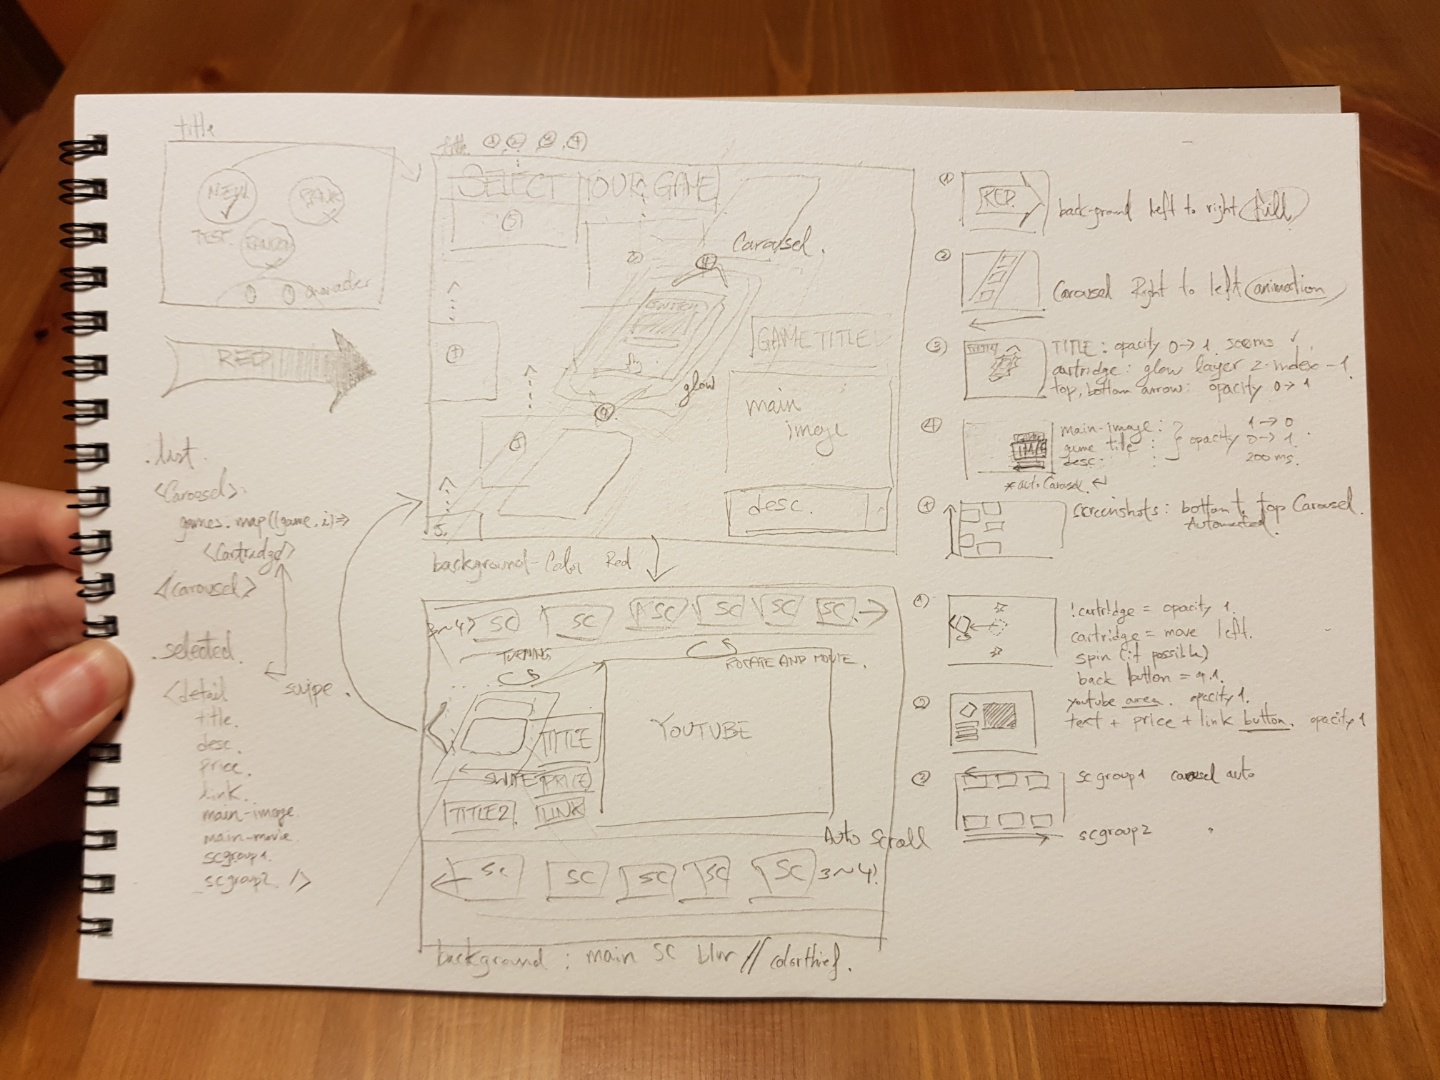 title
NEW
TEST.
RED
.list.
<Carousel>.
games.map((game,i)=>
<Cartridge>
</carousel>
.selected.
<detail
title.
desc.
price.
link.
main-image
main-movie
scgroup1.
scgroup2. />
swipe.
title ① ② ③ ④
SELECT YOUR GAME
⑤
Carousel.
④
SWITCH
GAME TITLE
glow
④
main
image
desc.
5.
background-color Red
3~4?
SC SC SC SC SC SC
TURNING
ROTATE AND MOVIE.
YOUTUBE
TITLE
PRICE
TITLE2.
LINK
Auto Scroll
SC SC SC SC SC 3~4?
background : main SC blur // colorthief.
①
RED
back-ground left to right full
②
Carousel Right to left animation
③
TITLE : opacity 0→1 500ms ✓
cartridge : glow layer z-index -1
top, bottom arrow : opacity 0→1
④
main-image :
game title :
desc :
} opacity
1→0
0→1.
200ms.
*auto Carousel. ↵
screenshots : bottom to top Carousel.
Automated
①
!cartridge = opacity 1.
cartridge = move left.
spin (if possible)
back button =
②
youtube area. opacity 1.
text + price + link button. opacity 1
③
scgroup1 carousel auto
scgroup2 "